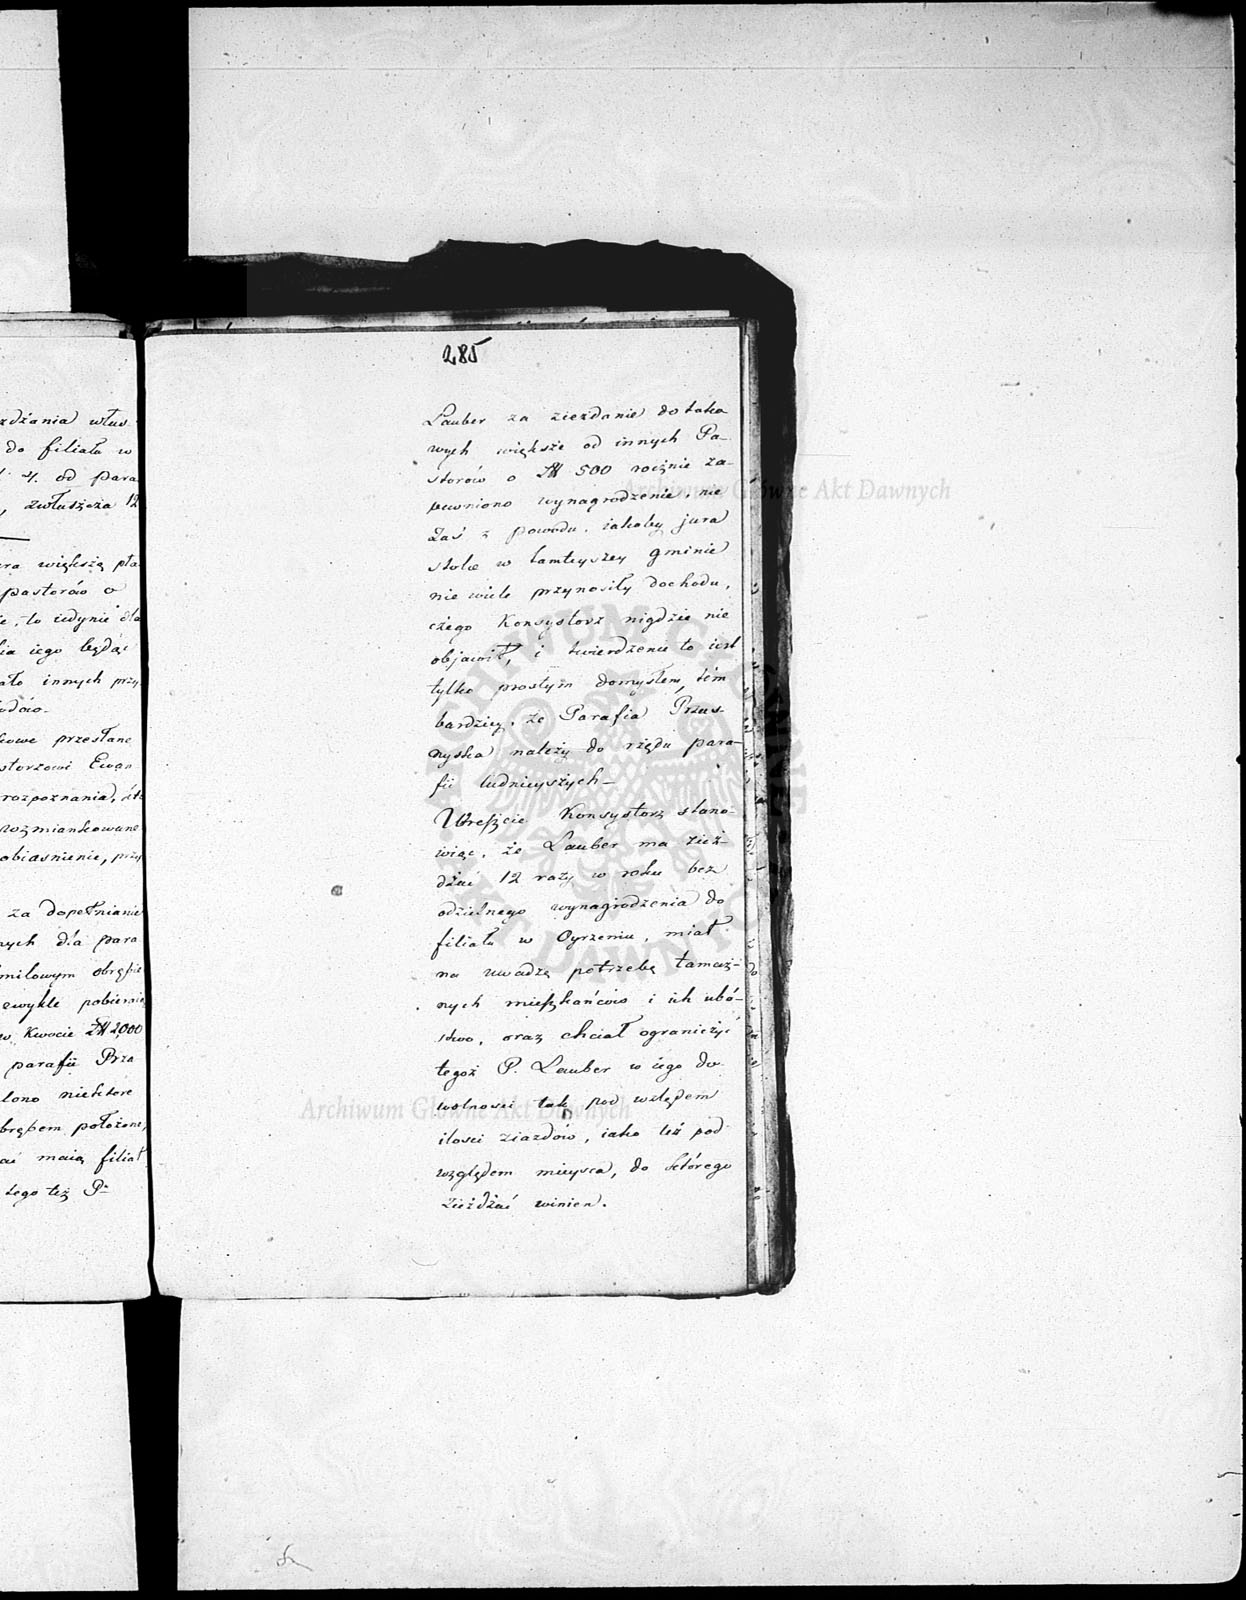 rdźania włas-
do filiału w
od para
zwłaszcza 12
ra większą pła
pastorów o
ie, to iedynie dla
ia iego będąc
ało innych przy
odów.
kowe przesłane
storzowi Ewan
rozpoznania, iż
wzmiankowane
obiasnienie, przy
za dopełnianie
nych dla para
milowym obrębie
zwykle pobieraią
w Kwocie Zł 2000
parafii Prza
lono niektóre
brębem położone,
ai maią filiał
tego też P.
285
Lauber za ziezdanie do tako
wych większe od innych Pa-
storów o Zł 500 rocznie za-
pewniono wynagrodzenie, nie
zaś z powodu, iakoby jura
stolæ w tamtyszey gminie
nie wiele przynosiły dochodu,
czego Konsystorz nigdzie nie
objawił, i twierdzenie to iest
tylko prostym domysłem, tém
bardziey, że Parafia Przas-
nyska należy do rzędu para-
fii ludnieyszych—
Wreszcie Konsystorz stano-
wiąc, że Lauber ma zież-
dżać 12 razy w roku bez
odzielnego wynagrodzenia do
filiału w Oyrzeniu, miał
na uwadze potrzebę tamecz-
nych mieszkańców i ich ubó-
stwo, oraz chciał ograniczyć
tegoż P. Lauber w iego do-
wolności tak pod względem
ilosci ziazdów, iako też pod
względem mieysca, do którego
zieżdżać winien.
Archiwum Główne Akt Dawnych
Archiwum Główne Akt Dawnych
ARCHIWUM GŁÓWNE
AKT DAWNYCH